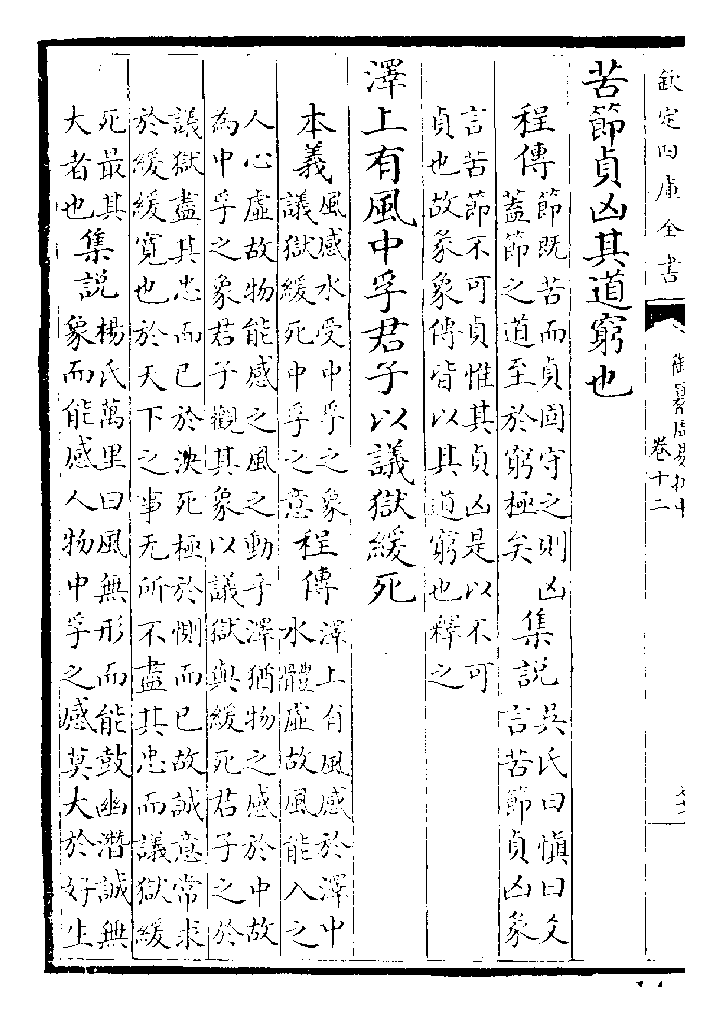 欽定四庫全書
御纂周易折中
卷十二
苦節貞凶其道窮也
程傳
節既苦而貞固守之則凶
蓋節之道至於窮極矣
集說
吳氏曰慎曰爻
言苦節貞凶彖
言苦節不可貞惟其貞凶是以不可
貞也故彖象傳皆以其道窮也釋之
澤上有風中孚君子以議獄緩死
本義
風感水受中孚之象
議獄緩死中孚之意
程傳
澤上有風感於澤中
水體虛故風能入之
人心虛故物能感之風之動乎澤猶物之感於中故
為中孚之象君子觀其象以議獄與緩死君子之於
議獄盡其忠而已於決死極於惻而已故誠意常求
於緩緩寬也於天下之事无所不盡其忠而議獄緩
死最其
大者也
集說
楊氏萬里曰風無形而能鼓幽潛誠無
象而能感人物中孚之感莫大於好生